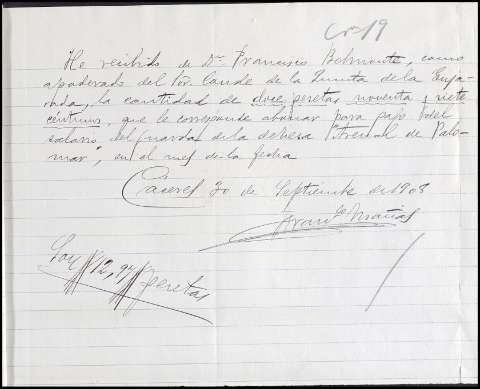 Cª 19
He recibido de Dn. Francisco Belmonte, como
apoderado del Sor. Conde de la Quinta de la Enja-
rada, la cantidad de doce pesetas noventa y siete
centimos, que le corresponde abonar para pago del
salario del guarda de la dehesa "Arenal de Palo-
mar", en el mes de la fecha
Cáceres 30 de Septiembre de 1908
Matias
Son # 12,97 # pesetas